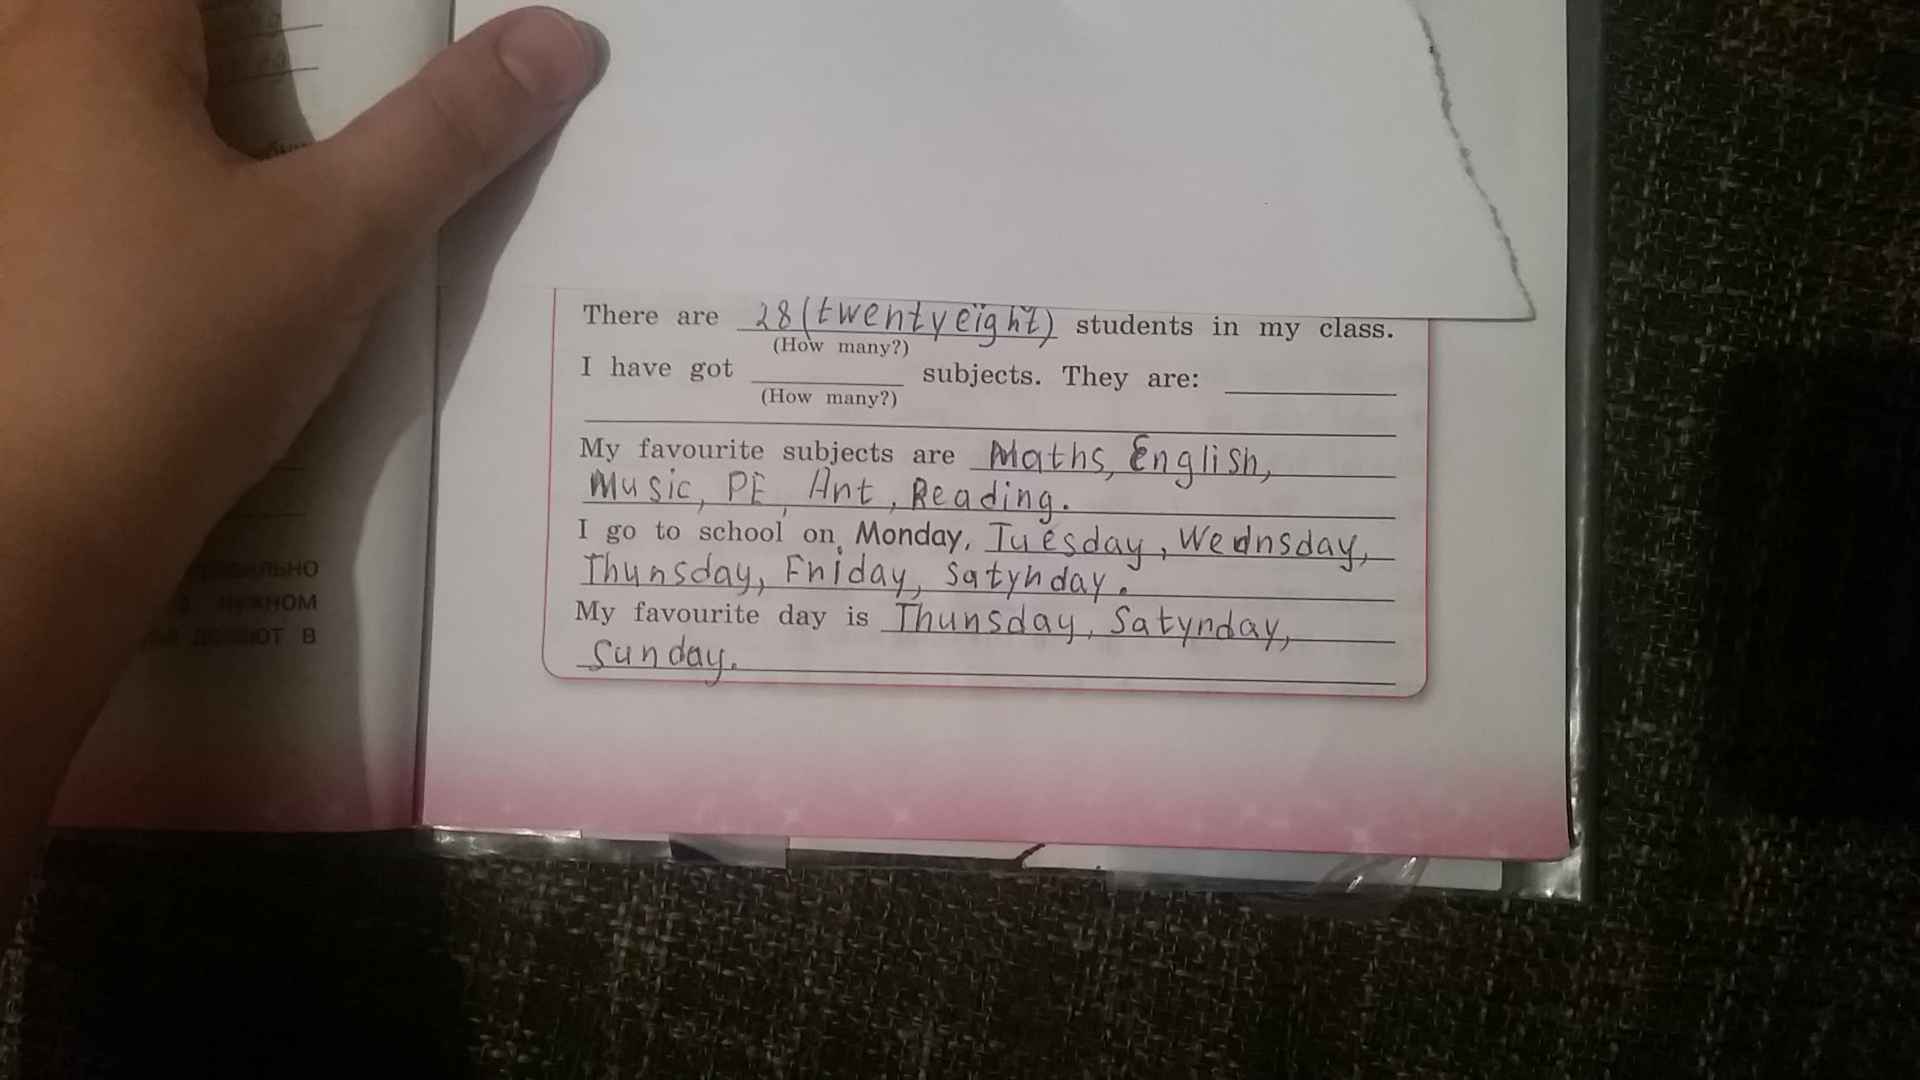 There are 28 (twentyeight) students in my class.
(How many?)
I have got ______ subjects. They are: ______
(How many?)
My favourite subjects are Maths, English,
Music, PE, Art, Reading.
I go to school on Monday, Tuesday, Wednsday,
Thursday, Friday, Satyrday.
My favourite day is Thursday, Satyrday,
Sunday.
НУЖНОМ
делают в